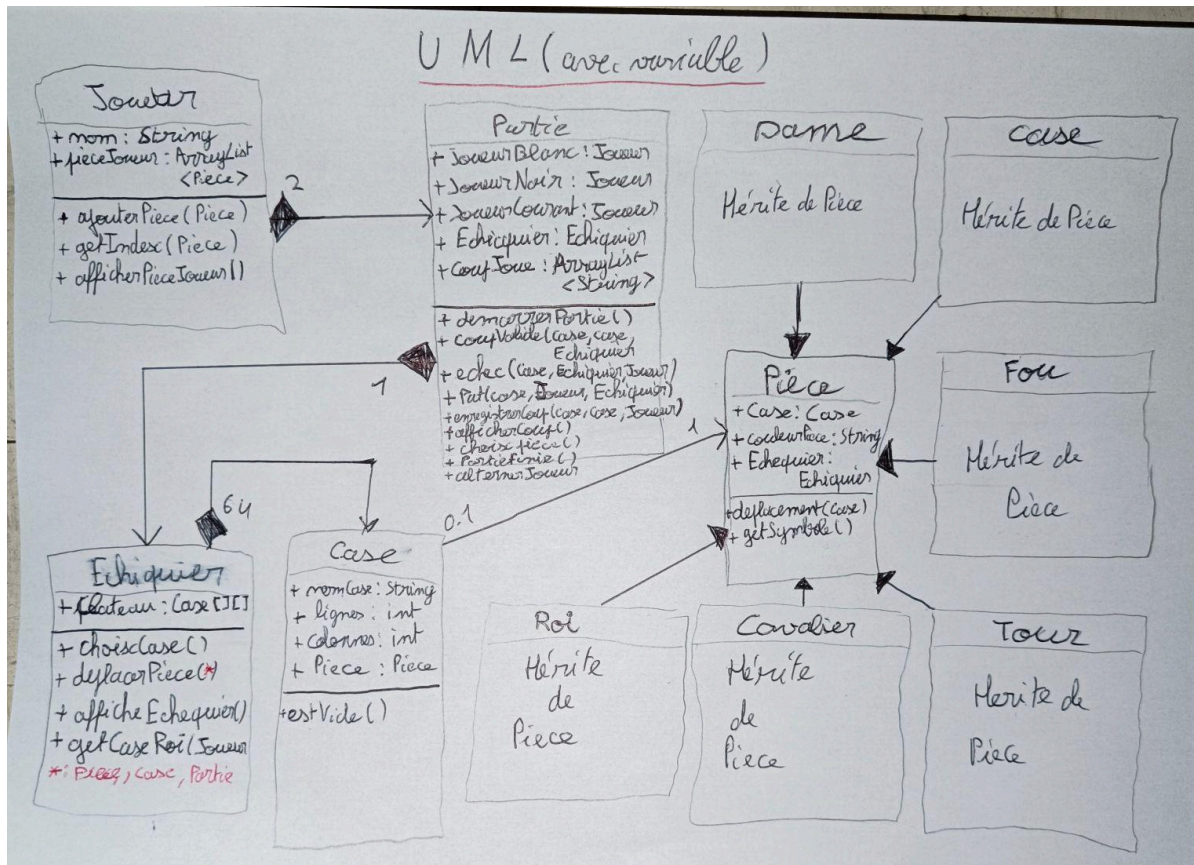 UML (avec variable)
Joueur
+ nom : String
+ pieceJoueur : ArrayList
<Piece>
+ ajouterPiece (Piece)
+ getIndex (Piece)
+ afficherPieceJoueur()
2
Partie
+ JoueurBlanc : Joueur
+ JoueurNoir : Joueur
+ JoueurCourant : Joueur
+ Echicquier : Echiquier
+ CoupJoue : ArrayList
<String>
+ demarrerPartie()
+ coupValide (case, case,
Echiquier
+ echec (Case, Echiquier, Joueur)
+ Pat (case, Joueur, Echiquier)
+ enregistrerCoup (case, case, Joueur)
+ afficherCoup()
+ choixpiece()
+ PartieFinie()
+ alternerJoueur
1
Dame
Hérite de Pièce
case
Hérite de Pièce
Pièce
+ Case : Case
+ couleurPiece : String
+ Echequier :
Echiquier
+ deplacement (Case)
+ getSymbole()
1
0.1
Fou
Hérite de
Pièce
64
Echiquier
+ Plateau : Case [][]
+ choixCase()
+ deplacerPiece(*)
+ afficheEchequier()
+ getCaseRoi (Joueur
* : Piece, Case, Partie
Case
+ nomCase : String
+ lignes : int
+ colonnes : int
+ Piece : Piece
+ estVide()
Roi
Hérite
de
Piece
Cavalier
Hérite
de
Pièce
Tour
Herite de
Pièce